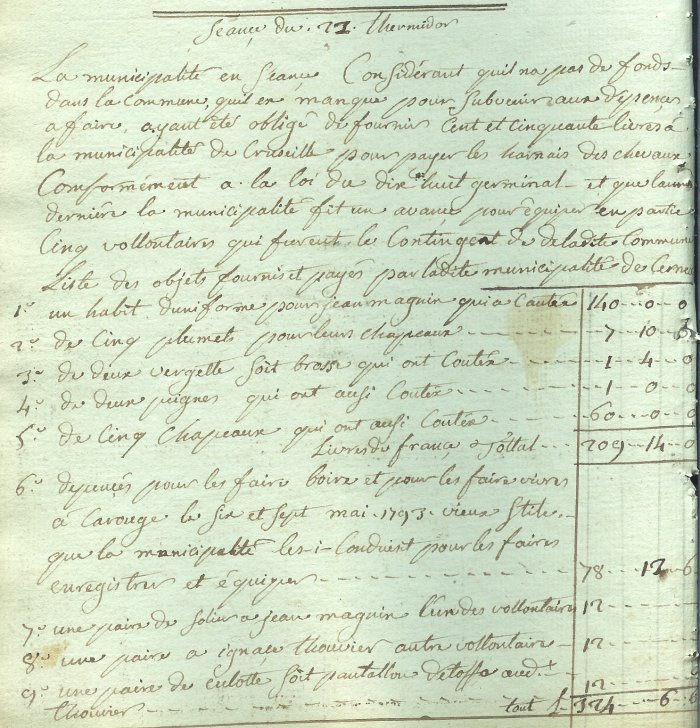 Séance du 21 Thermidor
La municipalité en Séance Considérant quil na pas de fonds
dans la commune, quil en manque pour Subvenir aux dépences
a faire, ayant été obligé de fournir Cent et cinquante livres à
la municipalité de Cruseille pour payer les harnais des chevaux
Conformément a la loi du dix huit germinal et que lannée
dernière la municipalité fit un avance pour équiper en partie
Cinq vollontaires qui furent le Contingent de deladite Commune
Liste des objets fournis et payés par ladite municipalité de Cernex
1.° un habit duniforme pour jean maguin qui a Couter 140 0 0
2.° de Cinq plumets pour leurs chapeaux 7 10
3.° de deux vergette Soit brosse qui ont Coutér 1 4 0
4.° de deux peignes qui ont ausi Coutér 1 0 0
5.° de Cinq Chapeaux qui ont ausi Coutér 60 0 0
Livres de france Tottal 209 14 0
6.° depences pour les faire boire et pour les faire vivres
à Carouge le Six et Sept mai 1793 vieux Stile
que la municipalité les i Conduisit pour les faires
enregistrer et équiper 78 12 6
7.° une paire de Solier a jean maguin l'un des vollontaires 12
8.° une paire a ignace thouvier autre vollontaire 12
9.° une paire de culotte Soit pantallon détoffe aud.t 12
thouvier tout L 324 6